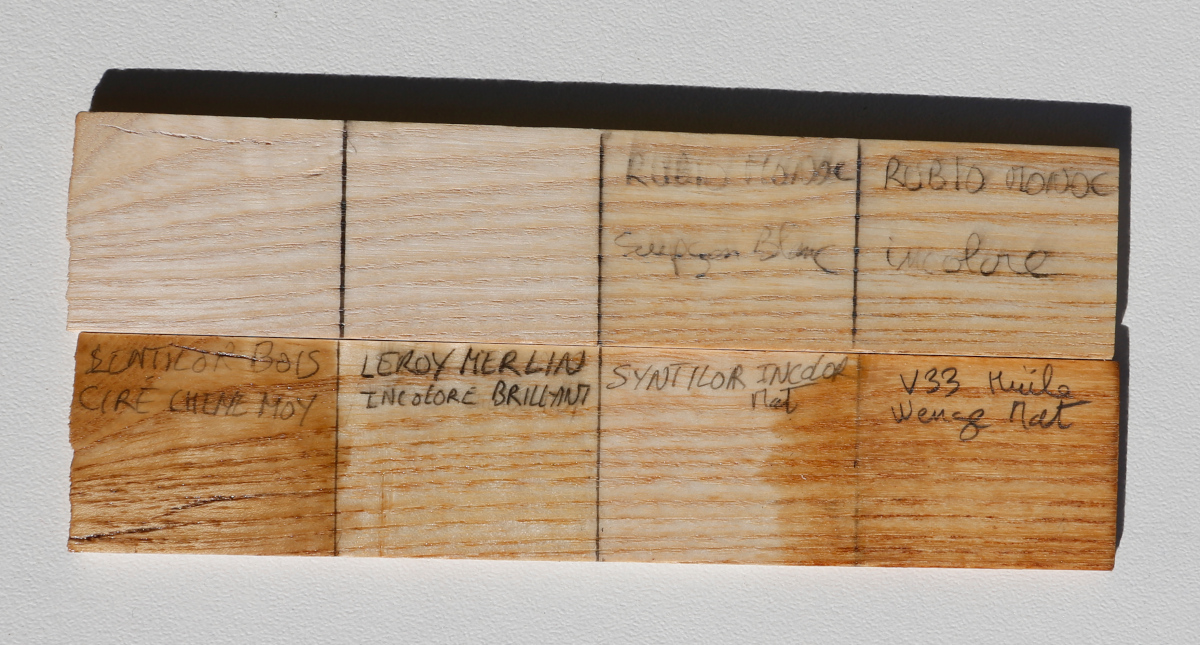 RUBIO MONOC
Blanc
RUBIO MONOC
incolore
SENTILOR BOIS
CIRÉ CHENE MOY
LEROY MERLIN
INCOLORE BRILLANT
SYNTILOR INCOLOR
Mat
V33 Huile
Wenge Mat